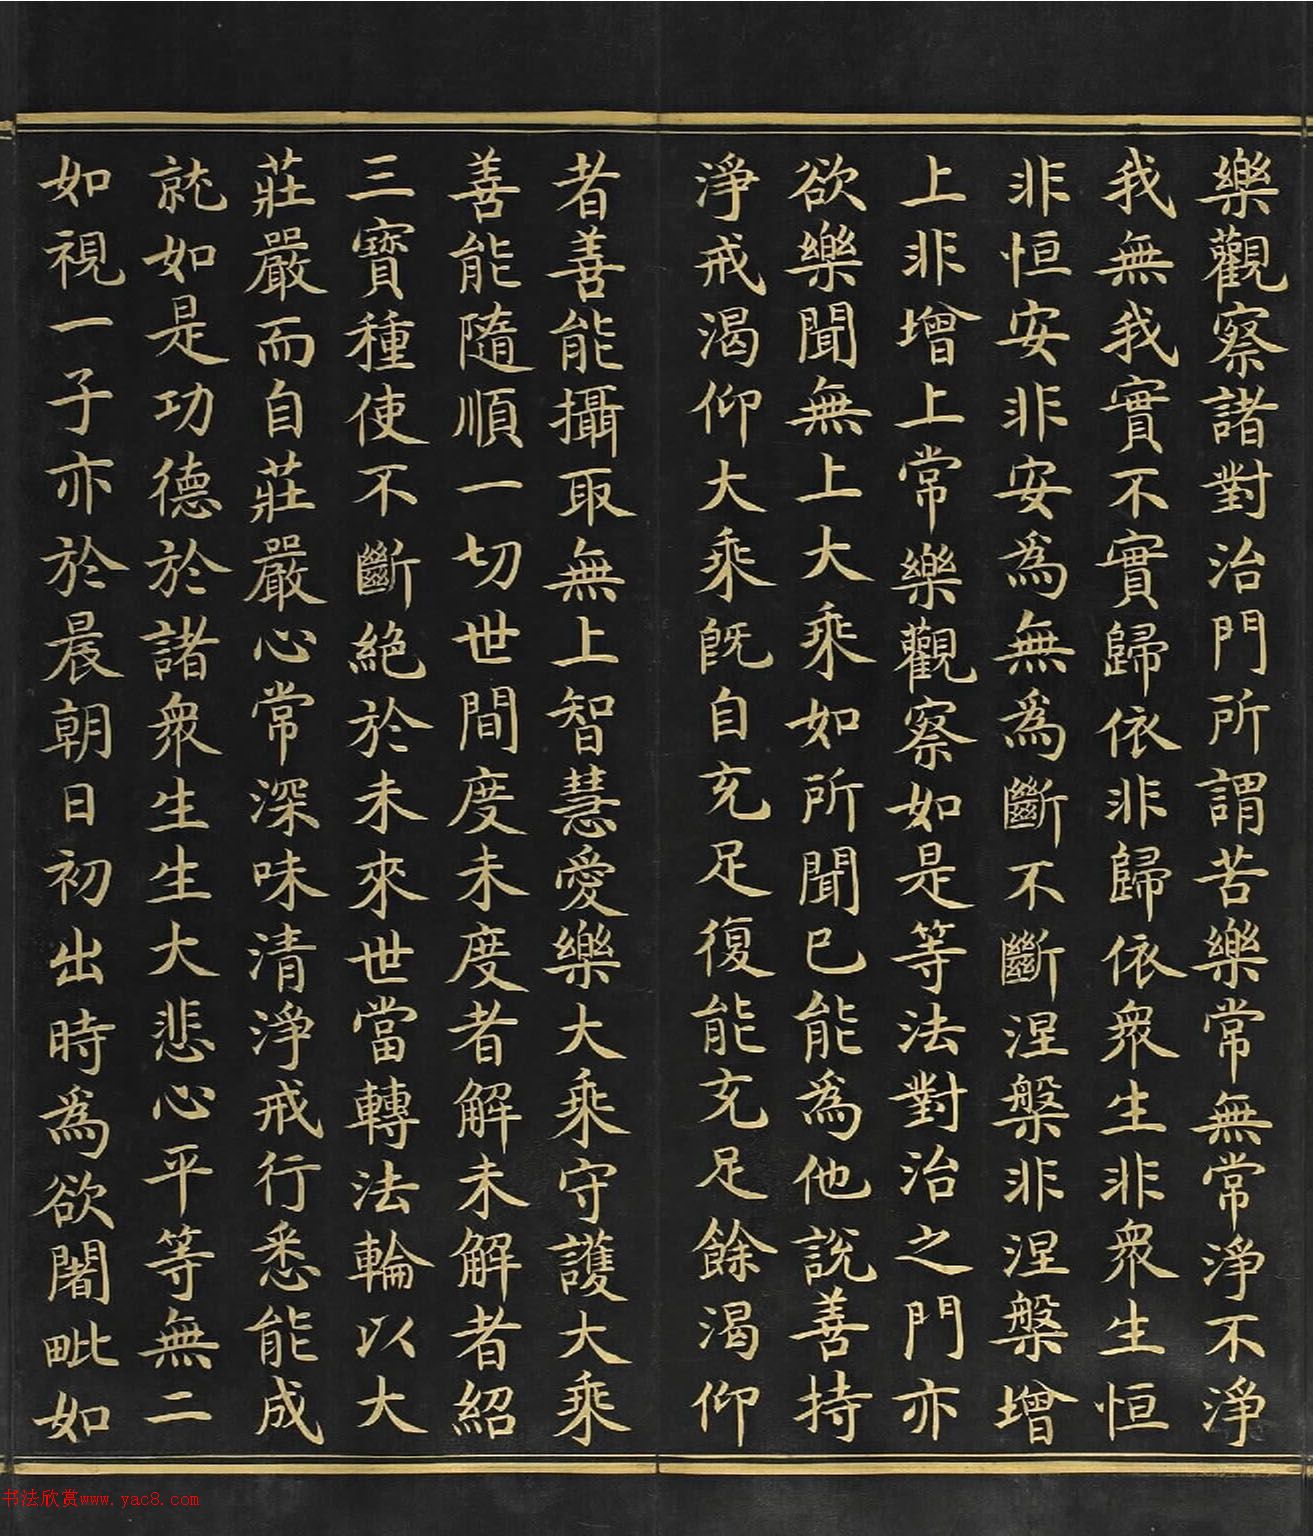 樂觀察諸對治門所謂苦樂常無常淨不淨
我無我實不實歸依非歸依衆生非衆生恒
非恒安非安為無為斷不斷涅槃非涅槃增
上非增上常樂觀察如是等法對治之門亦
欲樂聞無上大乘如所聞已能為他說善持
淨戒渴仰大乘旣自充足復能充足餘渴仰
者善能攝取無上智慧愛樂大乘守護大乘
善能隨順一切世間度未度者解未解者紹
三寳種使不斷絕於未來世當轉法輪以大
莊嚴而自莊嚴心常深味清淨戒行悉能成
就如是功德於諸衆生生大悲心平等無二
如視一子亦於晨朝日初出時為欲闍毗如
书法欣赏www.yac8.com